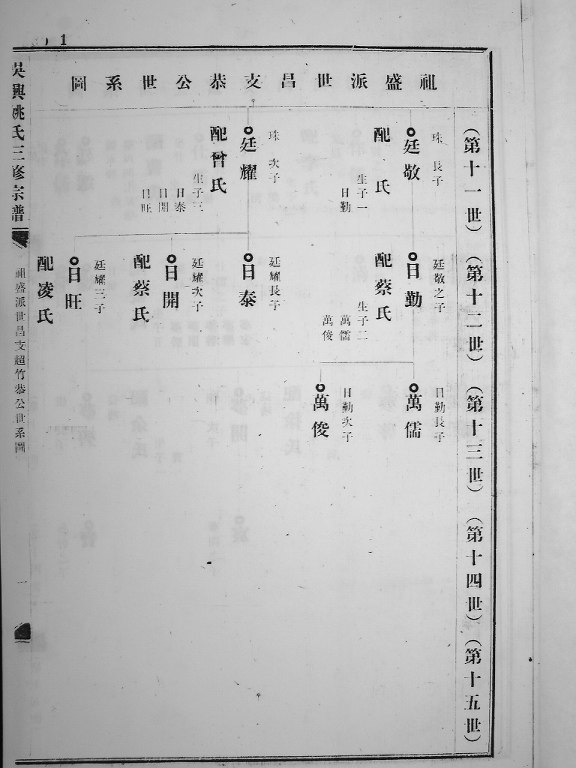 1
祖盛派世昌支恭公世系圖
(第十一世)
珠長子
廷敬
配 氏
生子一
日勤
珠次子
廷耀
配曾氏
生子三
日泰
日開
日旺
(第十二世)
廷敬之子
日勤
配蔡氏
生子二
萬儒
萬俊
廷耀長子
日泰
廷耀次子
日開
配蔡氏
廷耀三子
日旺
配凌氏
(第十三世)
日勤長子
萬儒
日勤次子
萬俊
(第十四世)
(第十五世)
吳興姚氏三修宗譜
祖盛派世昌支超竹恭公世系圖